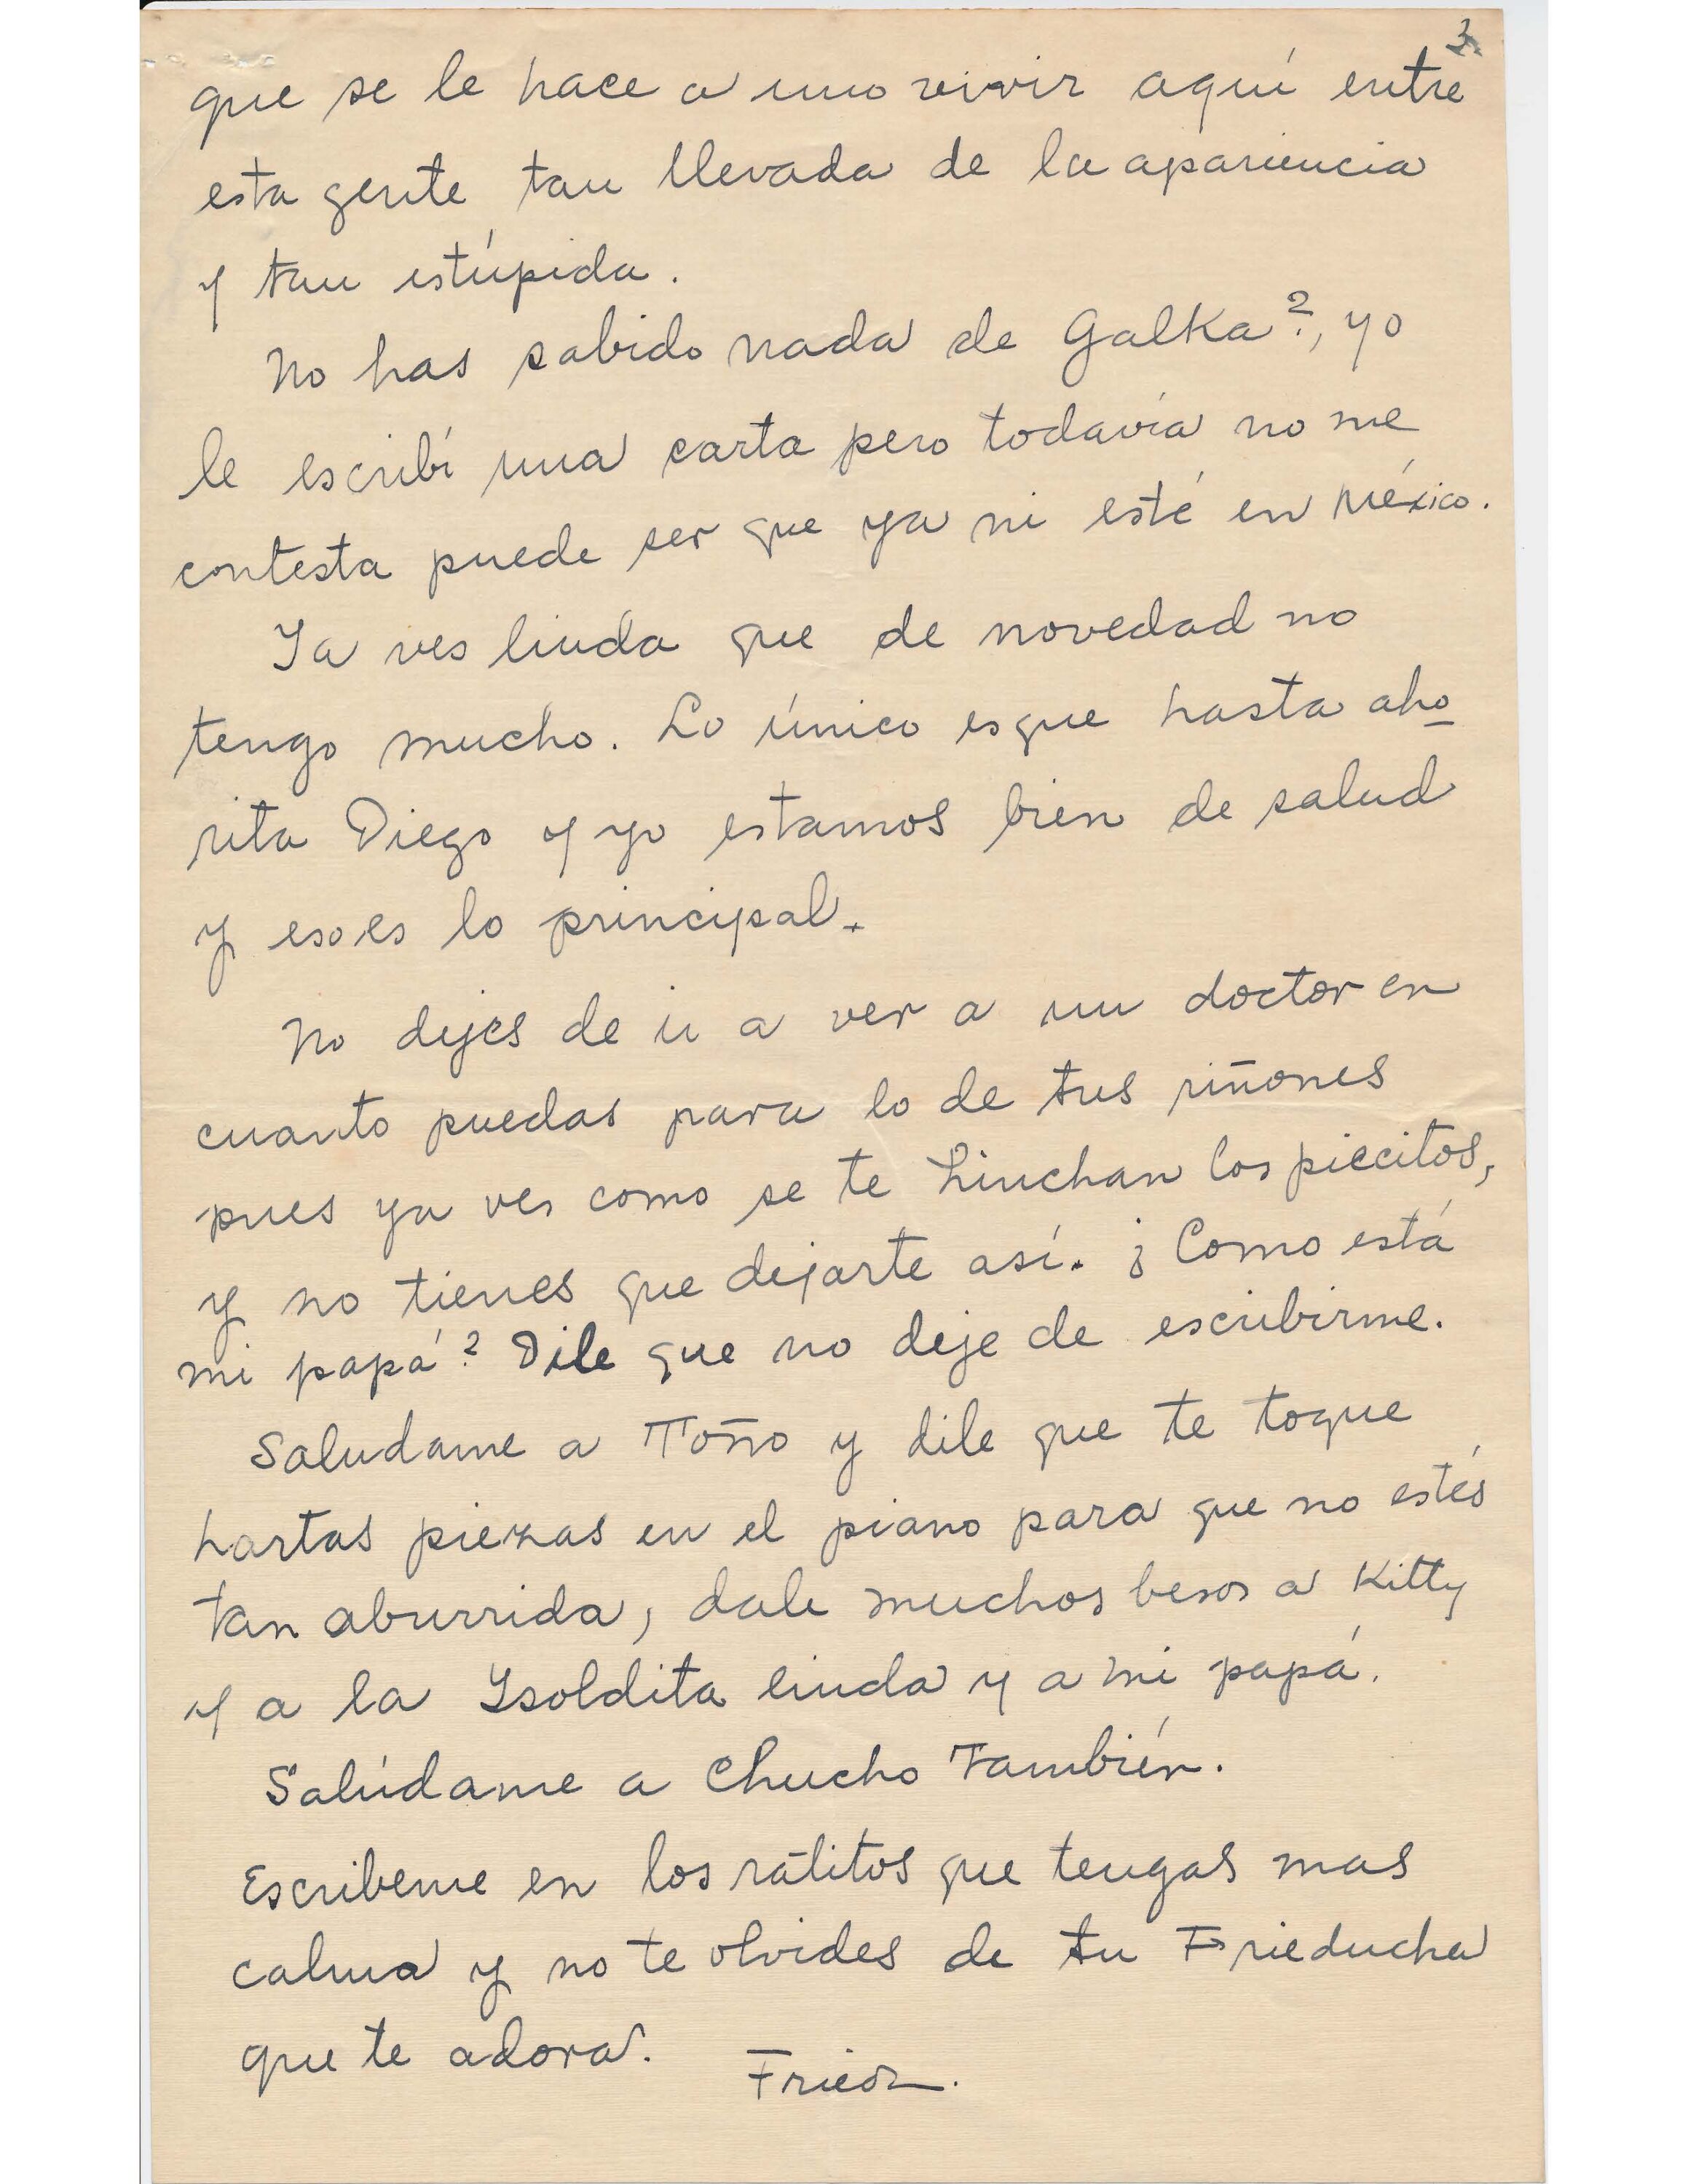 3
que se le hace a uno vivir aquí entre
esta gente tan llevada de la apariencia
y tan estúpida.
No has sabido nada de Galka?, yo
le escribí una carta pero todavía no me
contesta puede ser que ya ni esté en México.
Ya ves linda que de novedad no
tengo mucho. Lo único es que hasta aho
rita Diego y yo estamos bien de salud
y eso es lo principal.
No dejes de ir a ver a un doctor en
cuanto puedas para lo de tus riñones
pues ya ves como se te hinchan los piecitos,
y no tienes que dejarte así. ¿Como está
mi papá? Dile que no deje de escribirme.
Saludame a Toño y dile que te toque
hartas piezas en el piano para que no estés
tan aburrida, dale muchos besos a Kitty
y a la Isoldita linda y a mi papá.
Salúdame a Chucho También.
Escribeme en los ratitos que tengas mas
calma y no te olvides de tu Frieducha
que te adora.
Frieda.